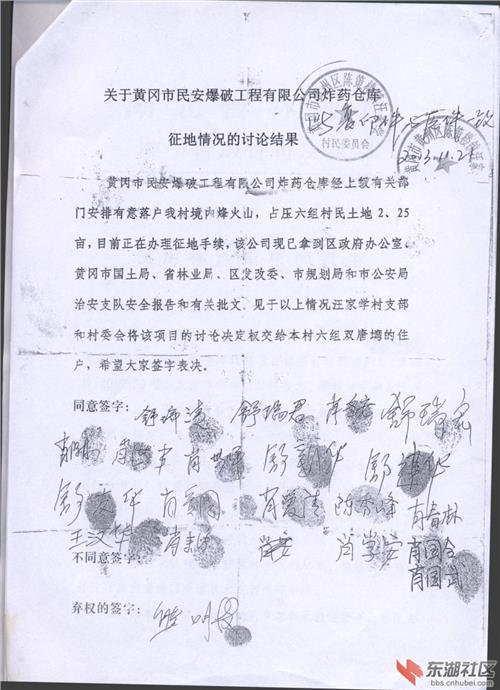 关于黄冈市民安爆破工程有限公司炸药仓库
征地情况的讨论结果
村民委员会
2013.11.21
黄冈市民安爆破工程有限公司炸药仓库经上级有关部
门安排有意落户我村境内烽火山，占压六组村民土地2、25
亩，目前正在办理征地手续，该公司现已拿到区政府办公室、
黄冈市国土局、省林业局、区发改委、市规划局和市公安局
治安支队安全报告和有关批文。见于以上情况汪家学村支部
和村委会将该项目的讨论决定权交给本村六组双唐塆的住
户，希望大家签字表决。
同意签字： 舒瑞君 舒瑞名
舒建华
舒文华 肖爱清 陈秀峰 肖春林
王汉华 肖安 肖学安 肖国合
不同意签字： 肖国武
弃权的签字： 熊明
东湖社区
bbs.cnhubei.com